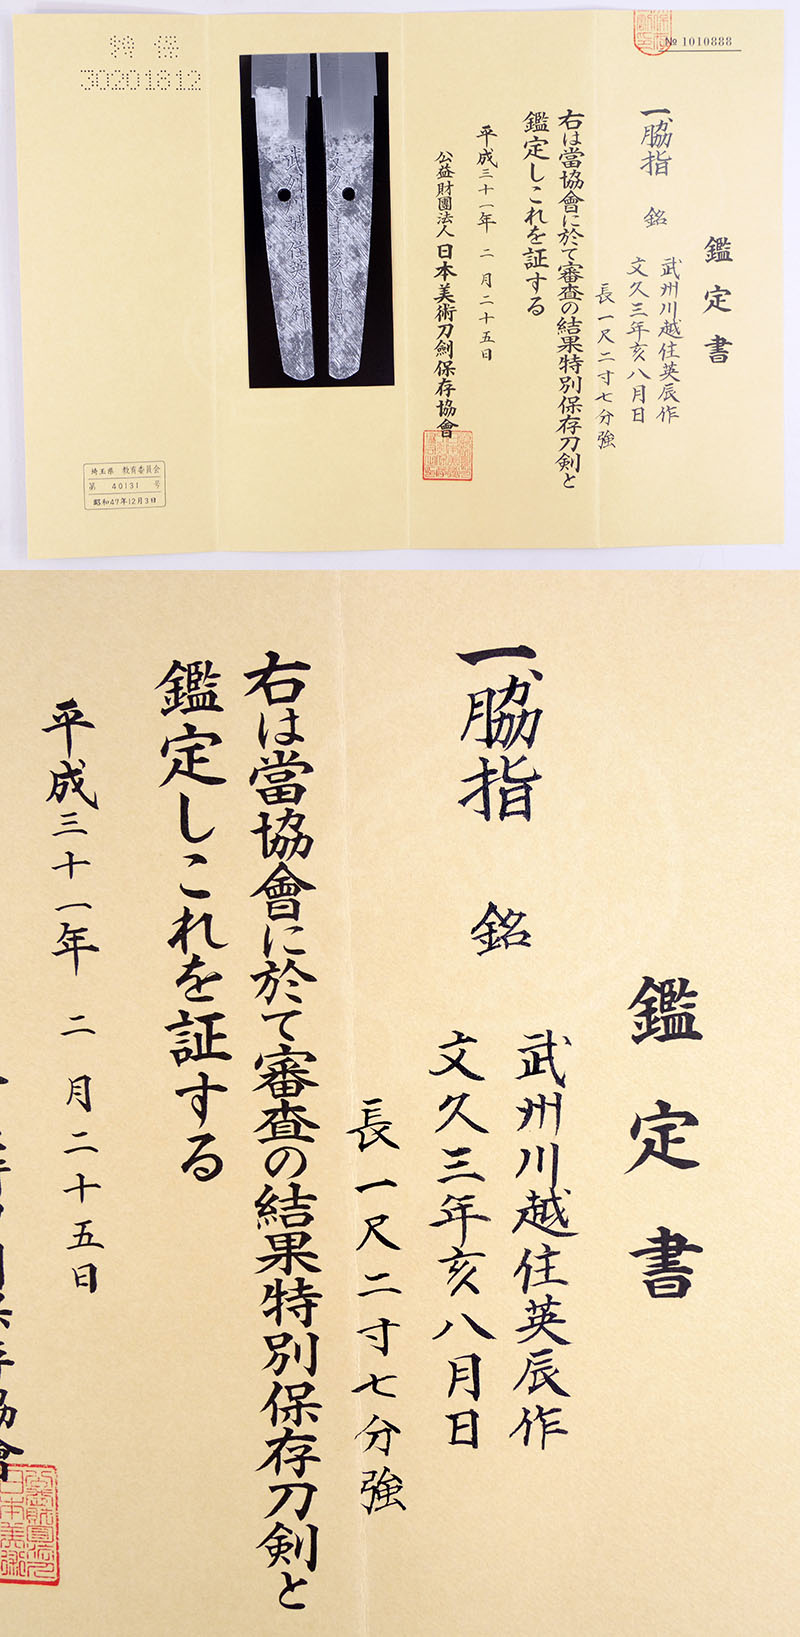 № 1010888
鑑定書
一、脇指 銘
武州川越住英辰作
文久三年亥八月日
長一尺二寸七分強
右は當協會に於て審査の結果特別保存刀剣と
鑑定しこれを証する
平成三十一年 二月二十五日
公益財團法人 日本美術刀劍保存協會
特 保
30201812
埼玉県 教育委員会
第 40131 号
昭和47年12月3日
鑑定書
一、脇指 銘
武州川越住英辰作
文久三年亥八月日
長一尺二寸七分強
右は當協會に於て審査の結果特別保存刀剣と
鑑定しこれを証する
平成三十一年 二月二十五日